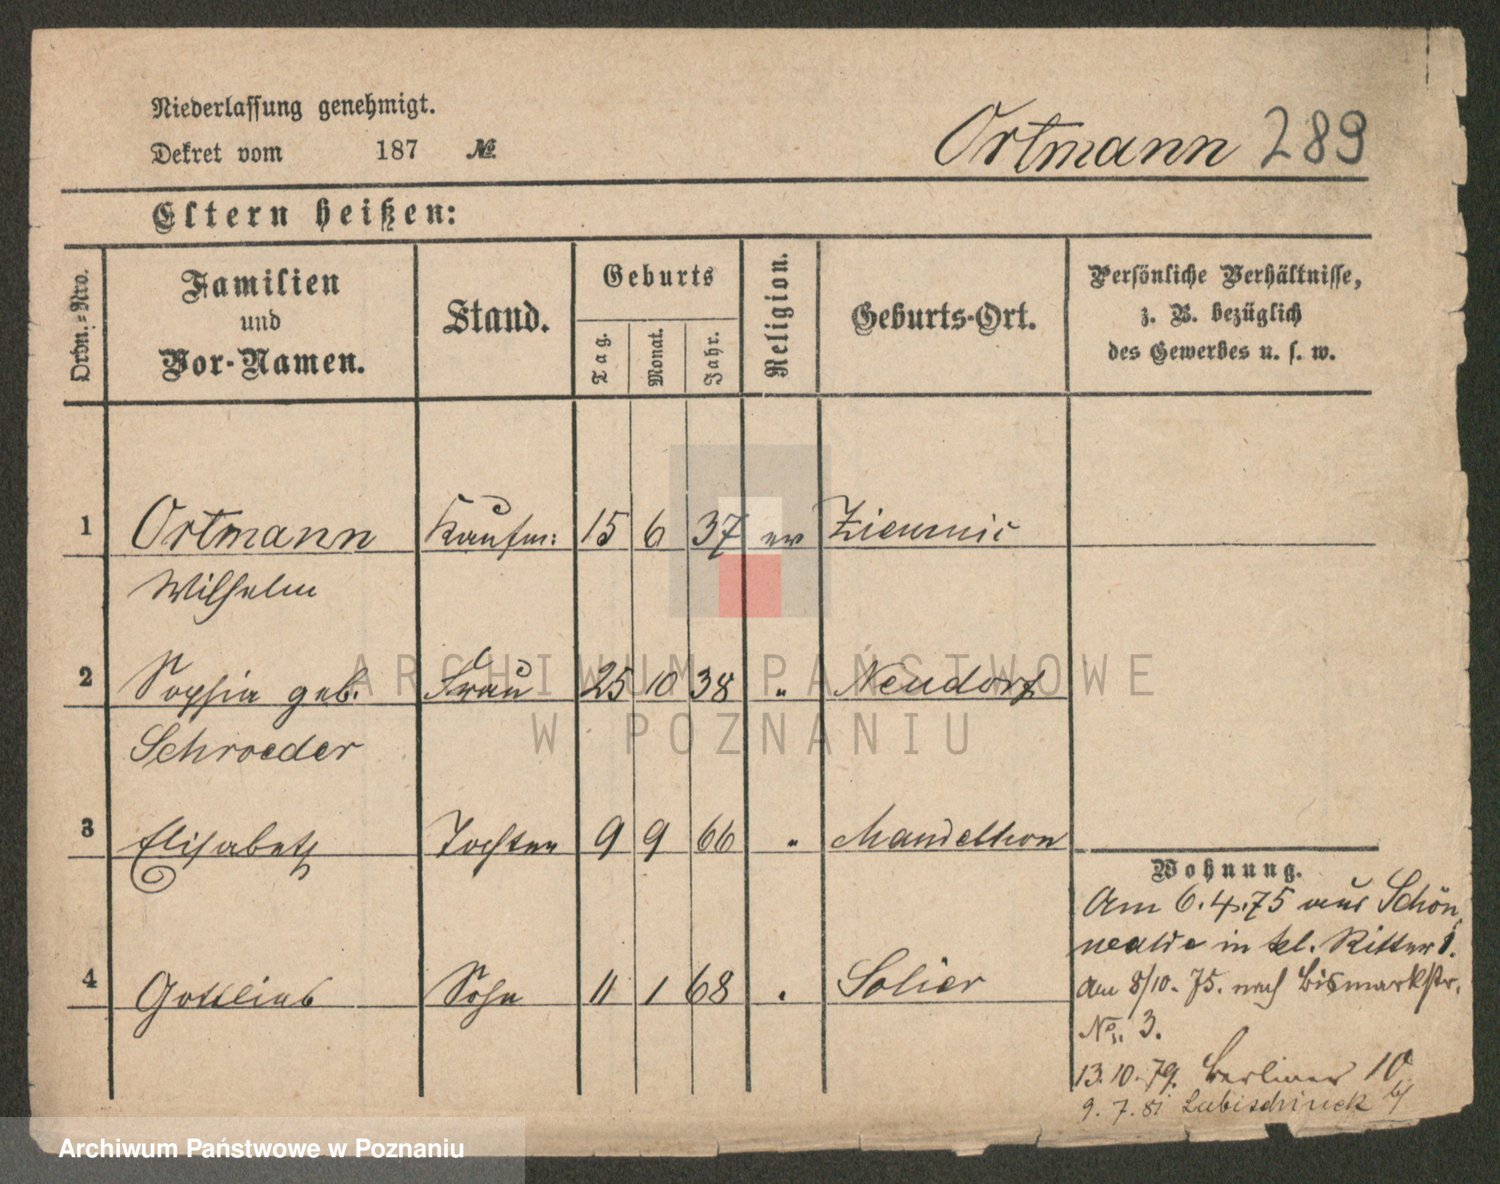 Niederlassung genehmigt.
Dekret vom 187 №
Ortmann 289
Eltern heißen:
Ordn.-Nro.
Familien
und
Vor-Namen.
Stand.
Geburts
Tag.
Monat.
Jahr.
Religion.
Geburts-Ort.
Persönliche Verhältnisse,
z. B. bezüglich
des Gewerbes u. s. w.
1 Ortmann Kaufm: 15 6 37 ev
Wilhelm
2 Sophia geb. Frau 25 10 38 " Neudorf
Schroeder
3 Elisabeth Tochter 9 9 66 "
4 Gottlieb Sohn 11 1 68 "
Wohnung.
Am 6.4.75 aus Schön
walde in kl. Ritter
am 8/10. 75. nach Bismarckstr.
No. 3.
13.10.79. Berliner 10
9. 7. 81
ARCHIWUM PAŃSTWOWE
W POZNANIU
Archiwum Państwowe w Poznaniu